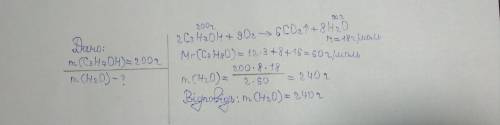 Дано:
m(C₃H₇OH)=200г
m(H₂O)-?
200г xг
2C₃H₇OH+9O₂→6CO₂↑+8H₂O
M=18г/моль
Mr(C₃H₈O)=12·3+8+16=60г/моль
m(H₂O)=200·8·18/2·60=240г
Відповідь: m(H₂O)=240г